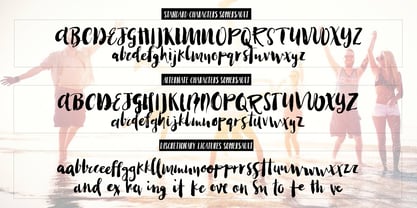 STANDARD CHARACTERS SOMERSAULT
ABCDEFGHIJKLMNOPQRSTUVWXYZ
abcdefghijklmnopqrstuvwxyz
ALTERNATE CHARACTERS SOMERSAULT
ABCDEFGHIJKLMNOPQRSTUVWXYZ
abcdefghijklmnopqrstuvwxyz
DISCRETIONARY LIGATURES SOMERSAULT
and ex ka ing it ke ove on Su to fe th ve